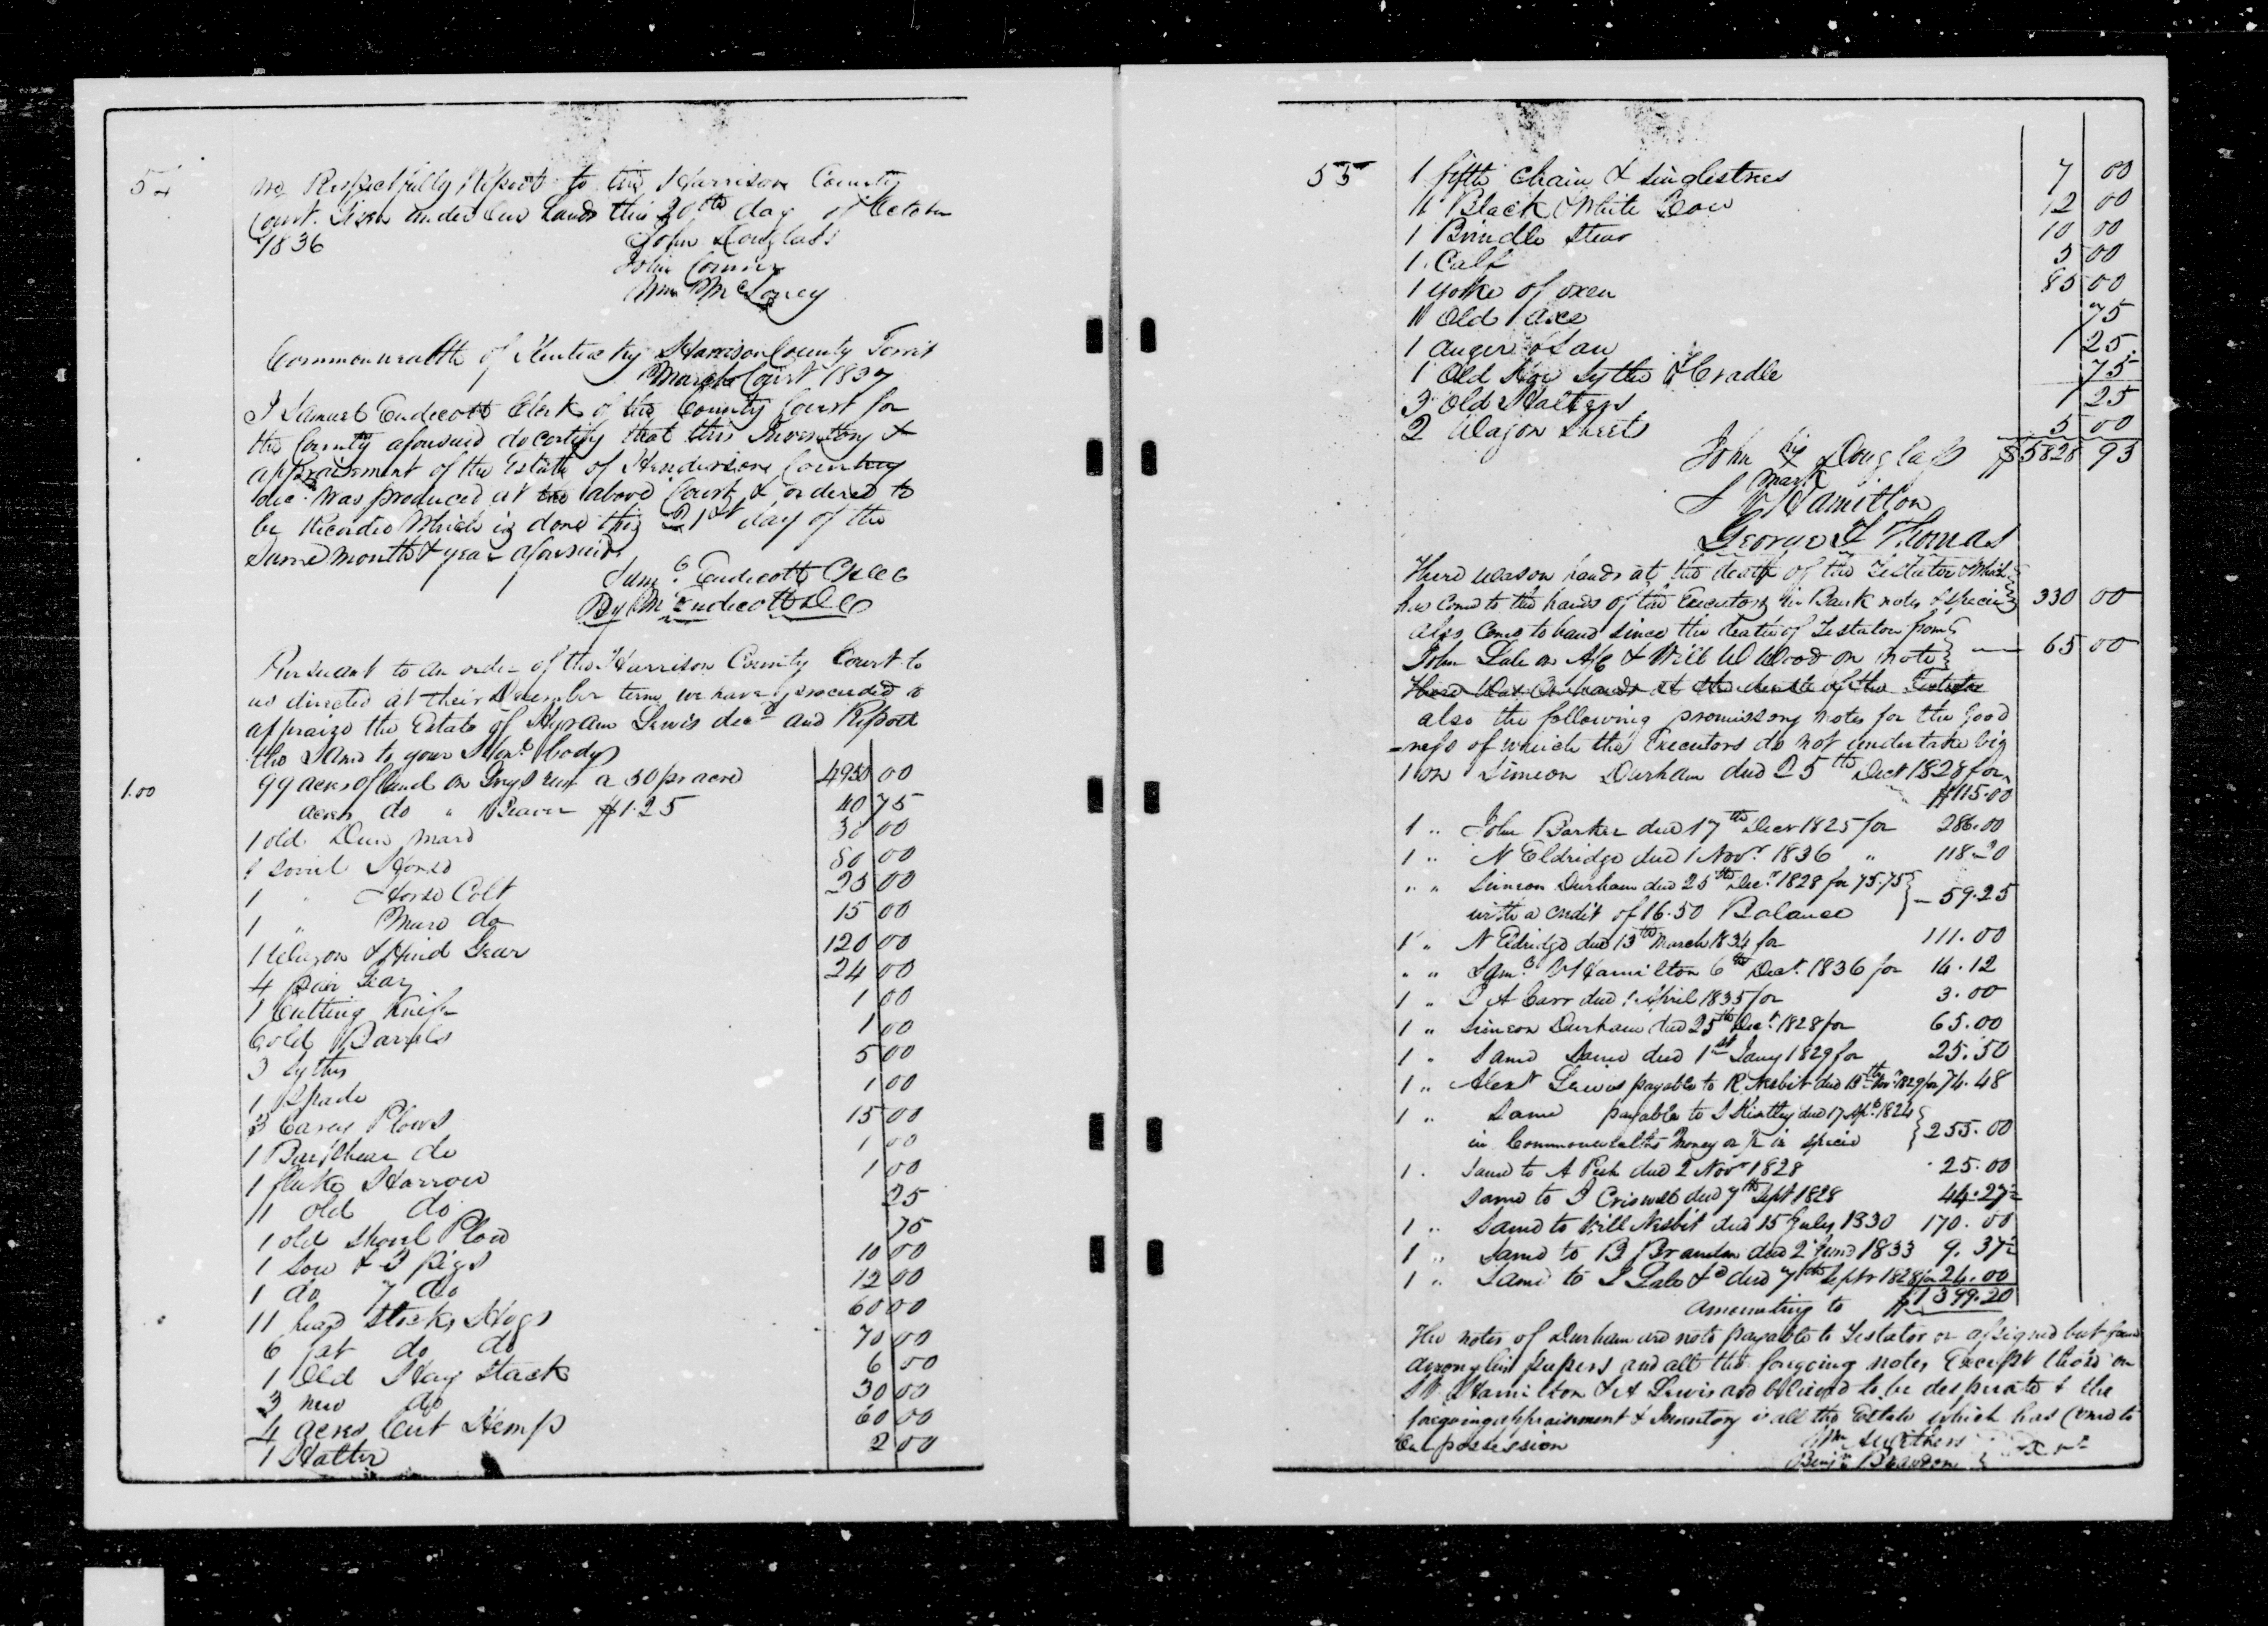 54
we Respectfully Report to the Harrison County
Court. Given under our hands this 20th day of October
1836 John Douglass
John Conner
Wm McLoney
Commonwealth of Kentucky Harrison County Towit
March Court 1837
I Samuel Endicott Clerk of the County Court for
the County aforesaid do certify that this Inventory &
appraisment of the Estate of Henderson Country
dec. was produced at the above Court & ordered to
be Recorded Which is done this 21st day of the
Same month & year aforesaid
Saml Endicott CHCC
By Wm Endicott DC
Pursuant to an order of the Harrison County Court to
us directed at their December term we have proceeded to
appraize the Estate of Hyram Lewis decd and Report
the Same to your Honl body
99 acres of land on Grays run a 50 pr acre 4950 00
1.00 acres do " Beaver $1.25 40 75
1 old Dun mare 30 00
1 Sorril Horse 80 00
1 " Horse Colt 25 00
1 " Mare do 15 00
1 Wagon & Hind Gear 120 00
4 pair Gear 24 00
1 Cutting Knife 1 00
6 old Barrels 1 00
3 Sythes 5 00
1 Spade 1 00
3 Carey Plows 15 00
1 Barshear do 1 00
1 fluke Harrow 1 00
11 old do 25
1 old Shovel Plow 75
1 Sow & 3 Pigs 10 00
1 do 7 do 12 00
11 head Stock Hogs 60 00
6 fat do do 70 00
1 Old Hay Stack 6 00
3 new do 30 00
4 acres Cut Hemp 60 00
1 Halter 2 00
55
1 fifth Chain & singletrees 7 00
11 Black & White Cow 12 00
1 Brindle Stear 10 00
1 Calf 5 00
1 yoke of oxen 85 00
11 Old axe 75
1 auger & Saw 1 25
1 Old Sythe & Cradle 75
3 Old Halters 1 25
2 Wagon Sheets 5 00
John his X mark Douglass $5828 93
S V Hamilton
George F Thomas
There was on hands at the death of the Testator Which
has come to the hands of the Executors in Bank notes & specie 330 00
also Come to hand since the death of Testator from
John Lale on A/C & Will W Wood on note 65 00
There Was On hands at the death of the Testator
also the following promissory notes for the good
-ness of which the Executors do not undertake viz
1 on Simeon Durham due 25th Dect 1828 for
$115.00
1 " John Barker due 17th Decr 1825 for 286.00
1 " N Eldridge due 1 Novr 1836 " 118.20
" " Simeon Durham due 25th Decr 1828 for 75.75
with a credit of 16.50 Balance 59.25
1 " N Eldridge due 13th March 1834 for 111.00
" " Saml V Hamilton 6th Decr 1836 for 14.12
1 " A Carr due 1 April 1835 for 3.00
1 " Simeon Durham due 25th Dect 1828 for 65.00
1 " Same Same due 1st Jany 1829 for 25.50
1 " Alexr Lewis payable to R Nesbit due 13th Novr 1829 for 74.48
1 " Same payable to due 17 Apl 1824
in Commonwealths Money or ½ in specie 255.00
1 . Same to A due 2 Novr 1828 25.00
Same to I Criswell due 7th Sept 1828 44.27½
1 " Same to Will Nesbit due 15 July 1830 170.00
1 " Same to B Brandon due 2 June 1833 9.37½
1 " Same to due 7th Septr 1828 for 24.00
amounting to $1399.20
The notes of Durham are not payable to Testator or assigned but found
among his papers and all the foregoing notes Except those on
S V Hamilton & A Lewis are believed to be desperate & the
foregoing appraisment & Inventory is all the Estate which has Come to
Our possession Wm Smithers
Benjn Brandon Exrs